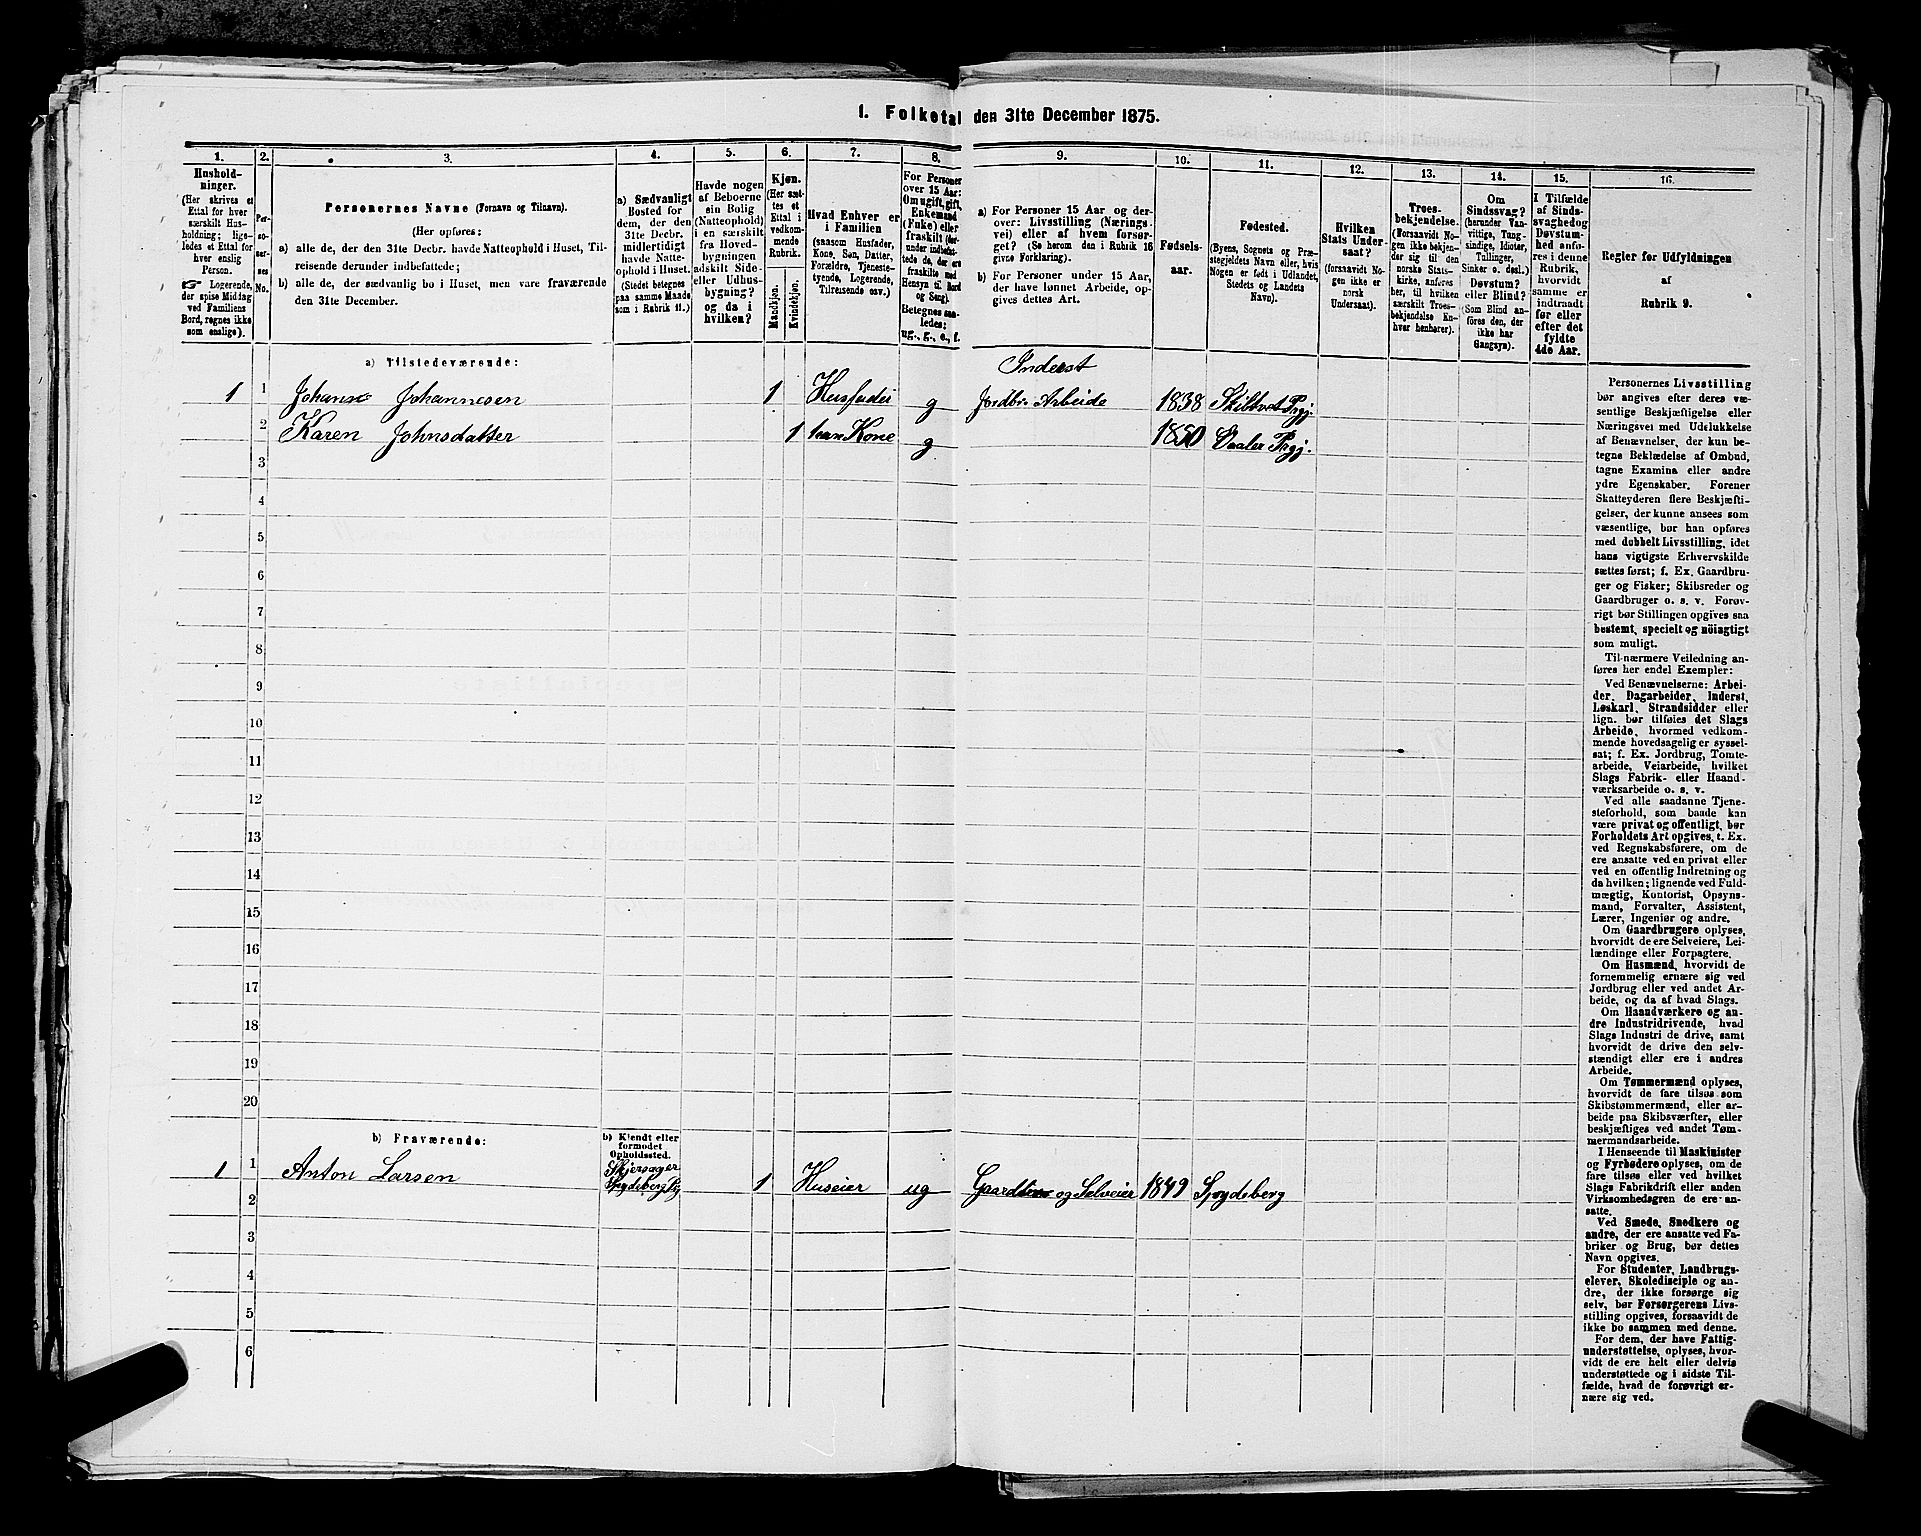 1. Folketal den 31te December 1875.
1. 2. 3. 4. 5. 6. 7. 8. 9. 10. 11. 12. 13. 14. 15. 16.
Hushold-
ninger.
(Her skrives et
Ettal for hver
særskilt Hus-
holdning; lige-
ledes et Ettal for
hver enslig
Person.
☞ Logerende,
der spise Middag
ved Familiens
Bord, regnes ikke
som enslige).
Per-
so-
ner-
nes
No.
Personernes Navne (Fornavn og Tilnavn).
(Her opføres:
a) alle de, der den 31te Decbr. havde Natteophold i Huset, Til-
reisende derunder indbefattede;
b) alle de, der sædvanlig bo i Huset, men vare fraværende
den 31te December.
a) Sædvanligt
Bosted for
dem, der den
31te Decbr.
midlertidigt
havde Natte-
ophold i Huset.
(Stedet betegnes
paa samme Maade
som i Rubrik 11.)
Havde nogen
af Beboerne
sin Bolig
(Natteophold)
i en særskilt
fra Hoved-
bygningen
adskilt Side-
eller Udhus-
bygning?
og da i
hvilken?
Kjøn.
(Her sæt-
tes et
Ettal i
vedkom-
mende
Rubrik.
Mandkjøn.
Kvindekjøn.
Hvad Enhver er
i Familien
(saasom Husfader,
Kone, Søn, Datter,
Forældre, Tjeneste-
tyende, Logerende,
Tilreisende osv.)
For Personer
over 15 Aar:
Om ugift, gift,
Enkemand
(Enke) eller
fraskilt
Betegnes saa-
ledes:
ug., g., e., f.
a) For Personer 15 Aar og der-
over: Livsstilling (Nærings-
vei) eller af hvem forsør-
get? (Se herom den i Rubrik 16
givne Forklaring).
b) For Personer under 15 Aar,
der have lønnet Arbeide, op-
gives dettes Art.
Fødsels-
aar.
Fødested.
(Byens, Sognets og Præ-
stegjeldets Navn eller, hvis
Nogen er født i Udlandet,
Stedets og Landets
Navn).
Hvilken
Stats Under-
saat?
(forsaavidt No-
gen ikke er
norsk
Undersaat).
Troes-
bekjendelse.
(Forsaavidt No-
gen ikke bekjen-
der sig til den
norske Stats-
kirke, anføres
her, til hvilken
særskilt Troes-
bekjendelse En-
hver henhører).
Om
Sindssvag?
(herunder Van-
vittige, Tung-
sindige, Idioter,
Tullinger,
Sinker o. desl.)
Døvstum?
eller Blind?
(Som Blind an-
føres den, der
ikke har
Gangsyn).
I Tilfælde
af Sinds-
svaghed og
Døvstum-
hed anfø-
res i denne
Rubrik,
hvorvidt
samme er
indtraadt
før eller
efter det
fyldte
4de Aar.
Regler for Udfyldningen
af
Rubrik 9.
a) Tilstedeværende:
Inderst
1 1 Johans Johannesen 1 Husfader g Jordbr. Arbeide 1838 Skiltvet Prgj.
2 Karen Johnsdatter 1 hans Kone g 1850 Vaaler Prgj.
3
4
5
6
7
8
9
10
11
12
13
14
15
16
17
18
19
20
b) Fraværende:
b) Kjendt eller
formodet
Opholdssted.
Skjersager
Spydeberg Prg
1 1 Anton Larsen 1 Huseier ug Gaardbr og Selveier 1849 Spydeberg
2
3
4
5
6
Personernes Livsstilling
bør angives efter deres væ-
sentlige Beskjæftigelse eller
Næringsvei med Udelukkelse
af Benævnelser, der kun be-
tegne Beklædelse af Ombud,
tagne Examina eller andre
ydre Egenskaber. Forener
Skatteyderen flere Beskjæfti-
gelser, der kunne ansees som
væsentlige, bør han opføres
med dobbelt Livsstilling, idet
hans vigtigste Erhvervskilde
sættes først; f. Ex. Gaardbru-
ger og Fisker; Skibsreder og
Gaardbruger o. s. v. Forøv-
rigt bør Stillingen opgives saa
bestemt, specielt og nöiagtigt
som muligt.
Til nærmere Veiledning an-
føres her endel Exempler:
Ved Benævnelserne: Arbei-
der, Dagarbeider, Inderst,
Løskarl, Strandsidder eller
lign. bør tilføies det Slags
Arbeide, hvormed vedkom-
mende hovedsagelig er syssel-
sat; f. Ex. Jordbrug, Tomte-
arbeide, Veiarbeide, hvilket
Slags Fabrik- eller Haand-
værksarbeide o. s. v.
Ved alle saadanne Tjene-
steforhold, som baade kan
være privat og offentligt, bør
Forholdets Art opgives, t. Ex.
ved Regnskabsførere, om de
ere ansatte ved en privat eller
ved en offentlig Indretning og
da hvilken; lignende ved Fuld-
mægtig, Kontorist, Opsyns-
mand, Forvalter, Assistent,
Lærer, Ingeniør og andre.
Om Gaardbrugere oplyses,
hvorvidt de ere Selveiere, Lei-
lændinge eller Forpagtere.
Om Husmænd, hvorvidt de
fornemmelig ernære sig ved
Jordbrug eller ved andet Ar-
beide, og da af hvad Slags.
Om Haandværkere og an-
dre Industridrivende, hvad
Slags Industri de drive, samt
hvorvidt de drive den selv-
stændigt eller ere i andres
Arbeide.
Om Tømmermænd oplyses,
hvorvidt de fare tilsøs som
Skibstømmermænd, eller ar-
beide paa Skibsværfter, eller
beskjæftiges ved andet Tøm-
mermandsarbeide.
I Henseende til Maskinister
og Fyrbødere oplyses, om de
fare tilsøs eller ved hvilket
Slags Fabrikdrift eller anden
Virksomhedsgren de ere an-
satte.
Ved Smede, Snedkere og
andre, der ere ansatte ved Fa-
briker og Brug, bør dettes
Navn opgives.
For Studenter, Landbrugs-
elever, Skoledisciple og an-
dre, der ikke forsørge sig
selv, bør Forsørgerens Livs-
stilling opgives, forsaavidt de
ikke bo sammen med denne.
For dem, der have Fattig-
understøttelse, oplyses, hvor-
vidt de ere helt eller delvis
understøttede og i sidste Til-
fælde, hvad de forøvrigt er-
nære sig ved.